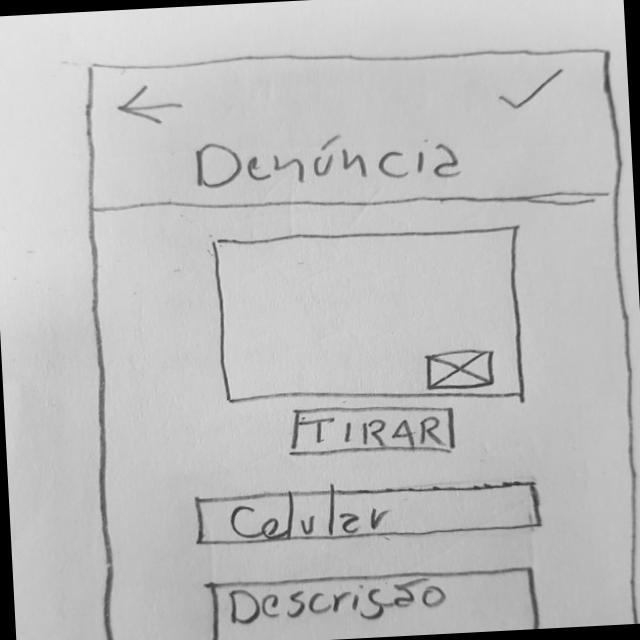 Denúncia
TIRAR
Celular
Descrição